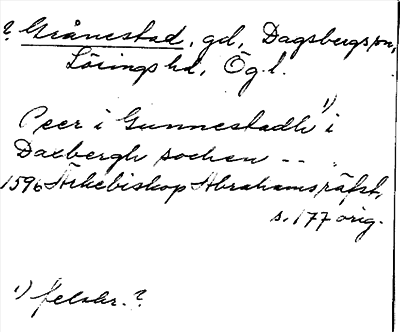 ? Grånestad, gd, Dagsbergs sn,
Lösings hd, Ög.l.
Peer i Gunnestadh 1) i
Daxbergh sochen - - -
1596 Ärkebiskop Abrahams räfst,
s. 177 orig.
1) felskr.?